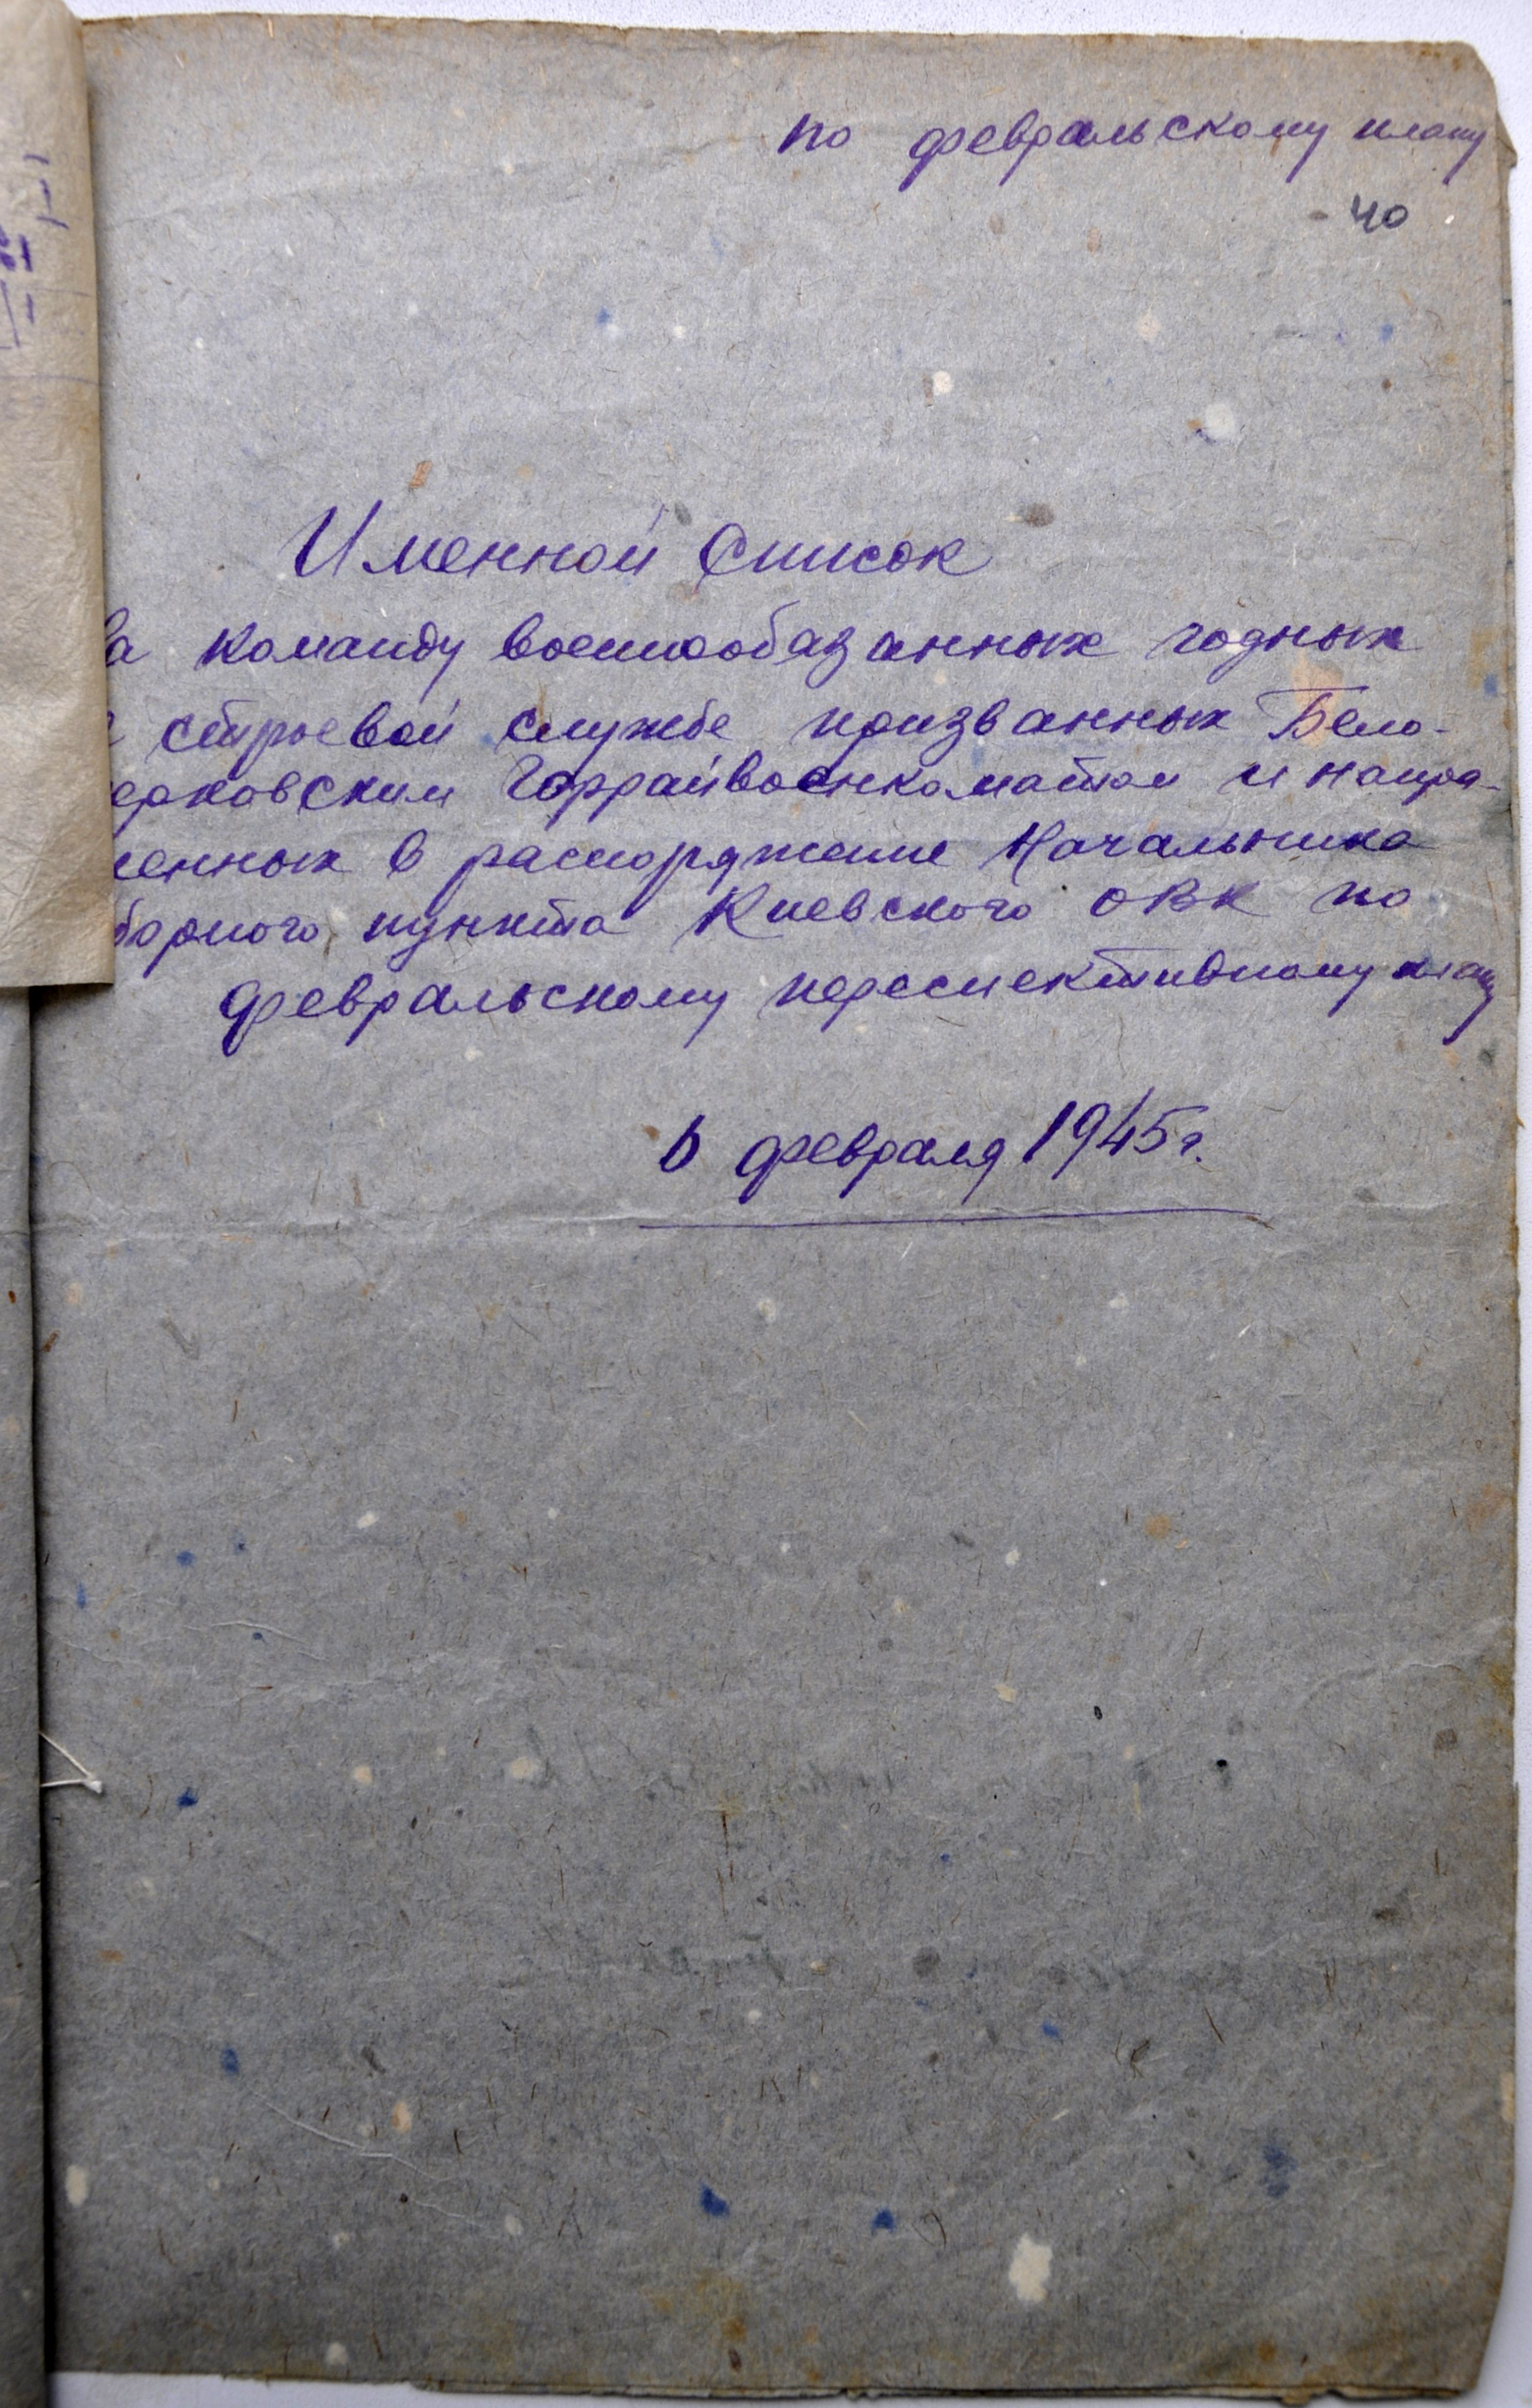 по февральскому плану
40
Именной Список
На команду военнообязанных годных
к строевой службе призванных Бело-
церковским Горрайвоенкоматом и напра-
вленных в распоряжение Начальника
сборного пункта Киевского ОВК по
февральскому переспективному плану
6 февраля 1945 г.